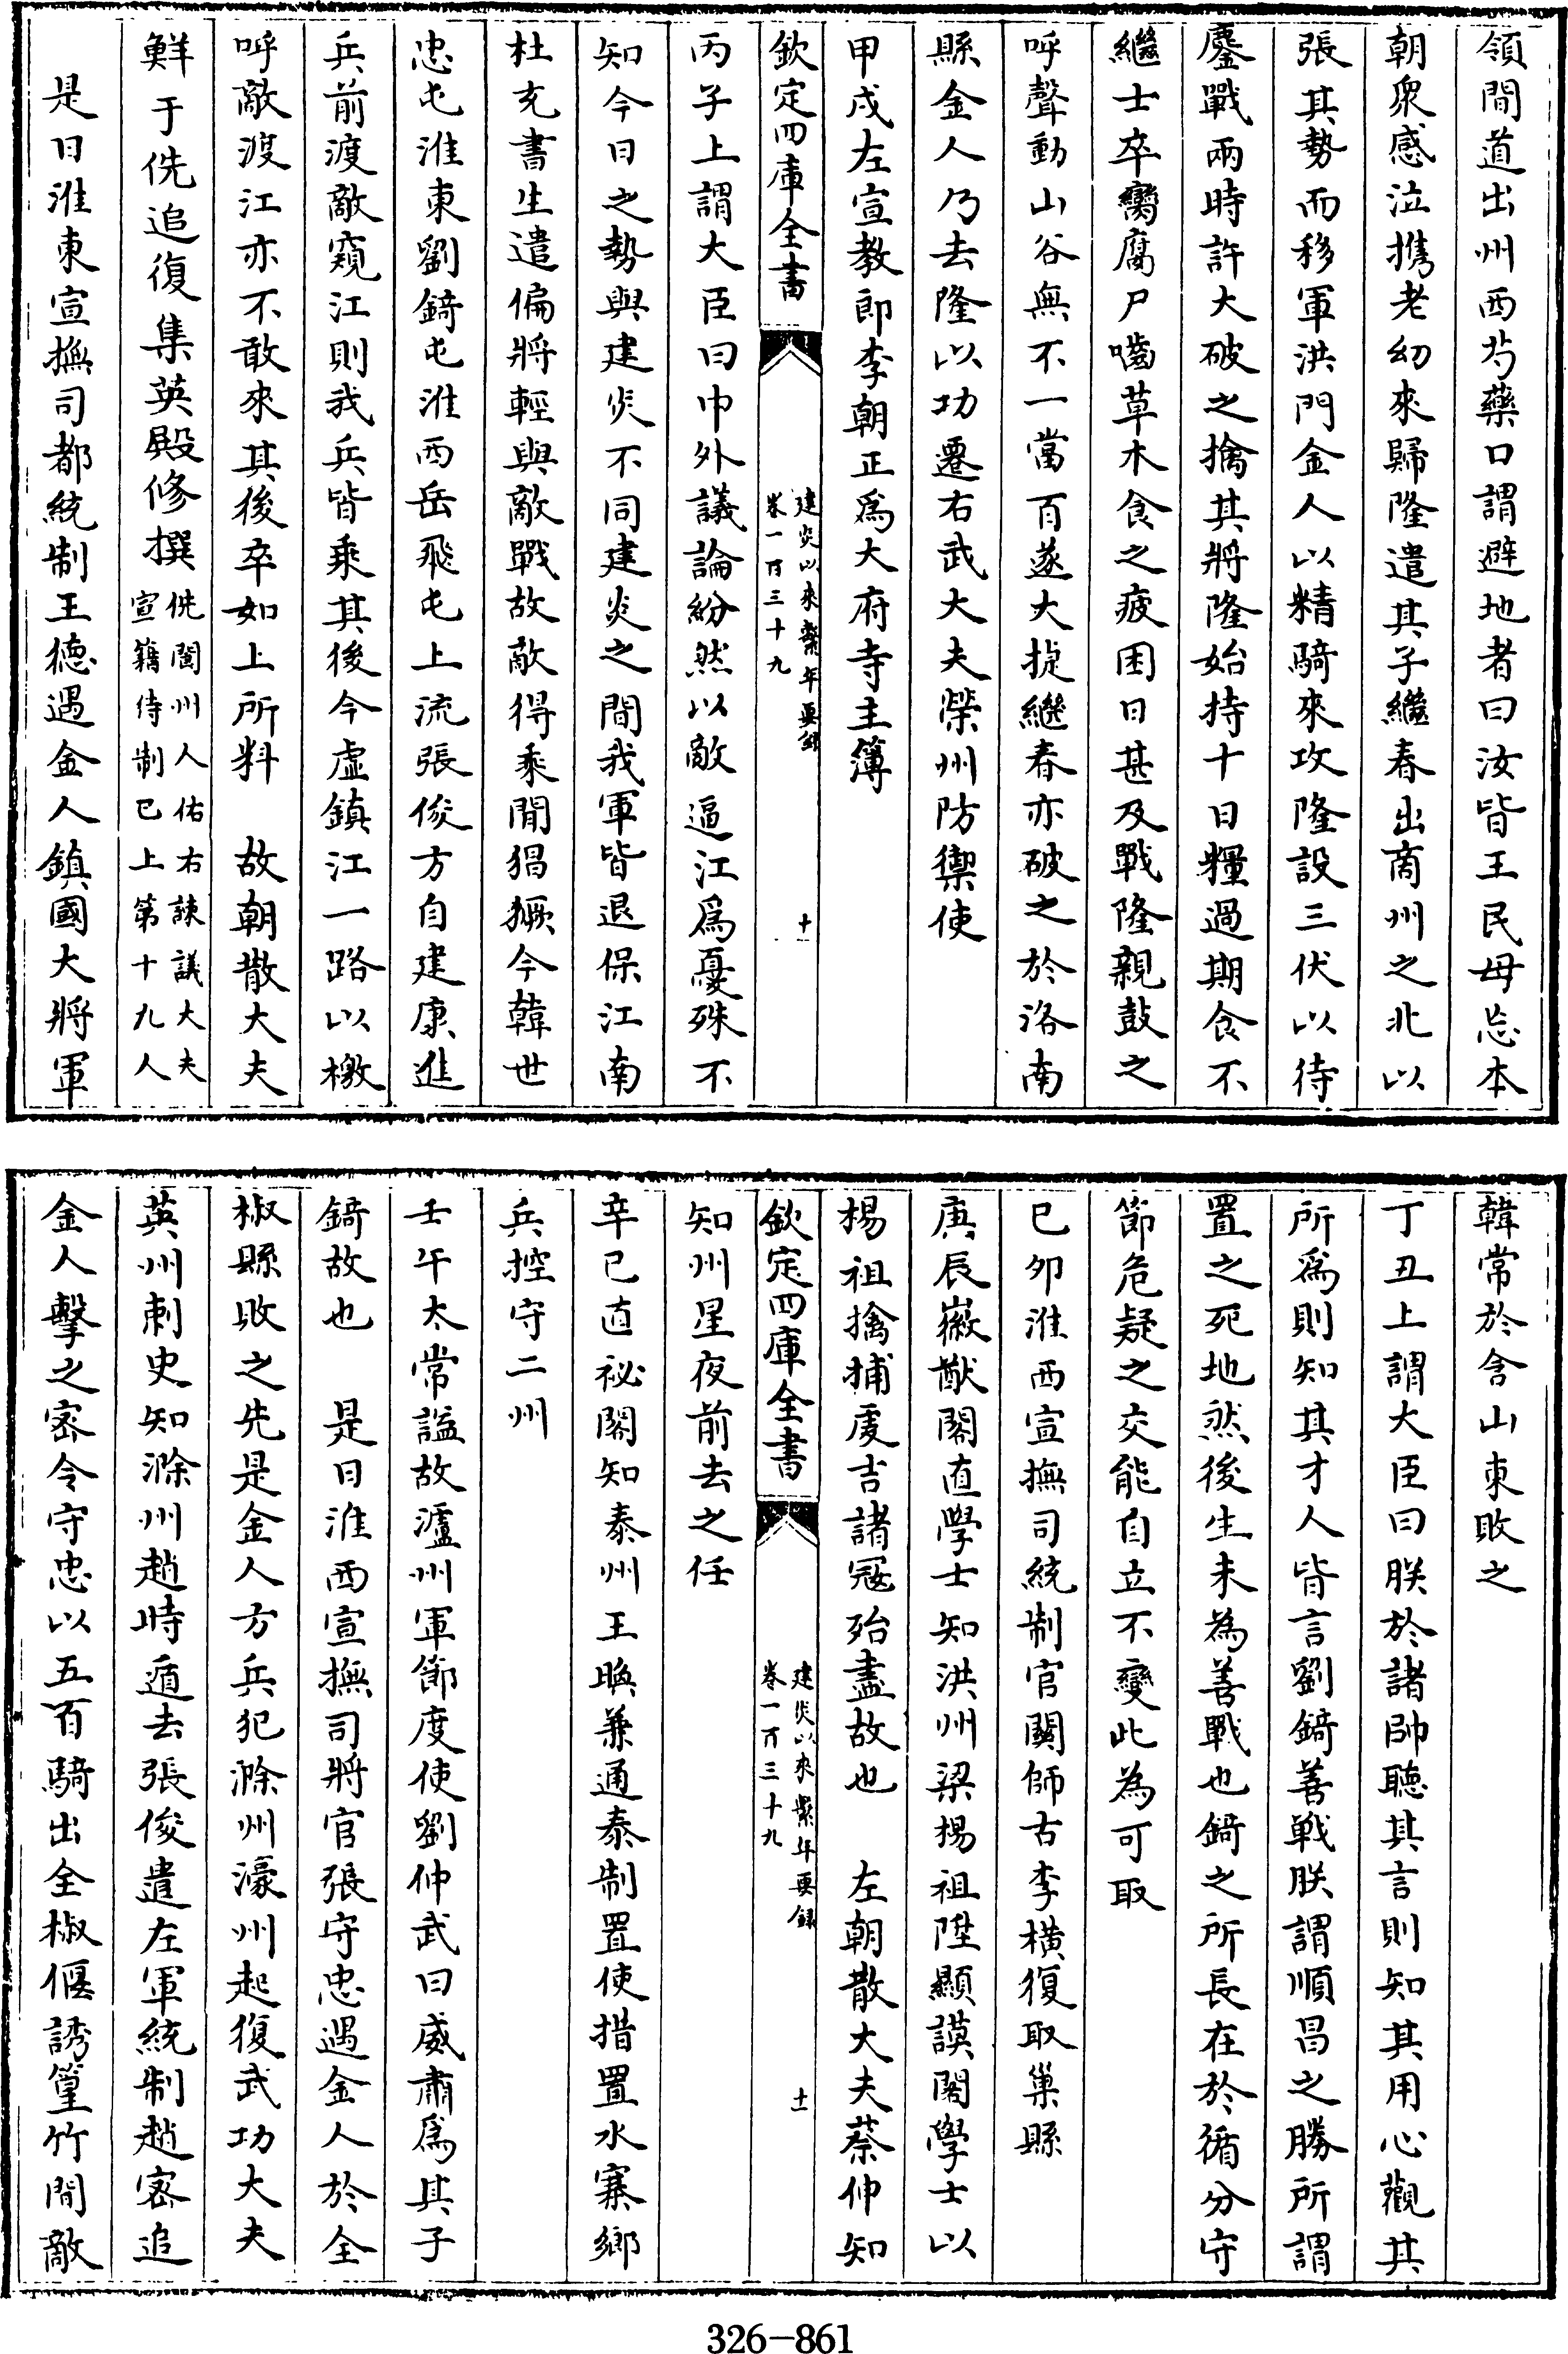 領間道出州西芍藥口謂避地者曰汝皆王民毋忘本
朝衆感泣携老幼來歸隆遣其子繼春出商州之北以
張其勢而移軍洪門金人以精騎來攻隆設三伏以待
鏖戰兩時許大破之擒其將隆始持十日糧過期食不
繼士卒臠腐尸嚙草木食之疲困日甚及戰隆親鼓之
呼聲動山谷無不一當百遂大捷繼春亦破之於洛南
縣金人乃去隆以功遷右武大夫榮州防禦使
甲戌左宣教郎李朝正爲大府寺主簿
欽定四庫全書
建炎以來繫年要錄
卷一百三十九
十
丙子上謂大臣曰中外議論紛然以敵逼江爲憂殊不
知今日之勢與建炎不同建炎之間我軍皆退保江南
杜充書生遣偏將輕與敵戰故敵得乘間猖獗今韓世
忠屯淮東劉錡屯淮西岳飛屯上流張俊方自建康進
兵前渡敵窺江則我兵皆乘其後今虛鎮江一路以檄
呼敵渡江亦不敢來其後卒如上所料　故朝散大夫
鮮于侁追復集英殿修撰
侁閬州人佑右諫議大夫
宣籍待制已上第十九人
是日淮東宣撫司都統制王德遇金人鎮國大將軍
韓常於含山東敗之
丁丑上謂大臣曰朕於諸帥聽其言則知其用心觀其
所爲則知其才人皆言劉錡善戰朕謂順昌之勝所謂
置之死地然後生未為善戰也錡之所長在於循分守
節危疑之交能自立不變此為可取
已卯淮西宣撫司統制官關師古李橫復取巢縣
庚辰徽猷閣直學士知洪州梁揚祖陞顯謨閣學士以
楊祖擒捕虔吉諸冦殆盡故也　左朝散大夫蔡仲知
欽定四庫全書
建炎以來繫年要錄
卷一百三十九
十一
知州星夜前去之任
辛已直祕閣知泰州王㬇兼通泰制置使措置水寨鄉
兵控守二州
壬午太常謚故瀘州軍節度使劉仲武曰威肅爲其子
錡故也　是日淮西宣撫司將官張守忠遇金人於全
椒縣敗之先是金人方兵犯滁州濠州起復武功大夫
英州刺史知滁州趙時遁去張俊遣左軍統制趙密追
金人擊之密令守忠以五百騎出全椒偃誘篁竹間敵
326-861